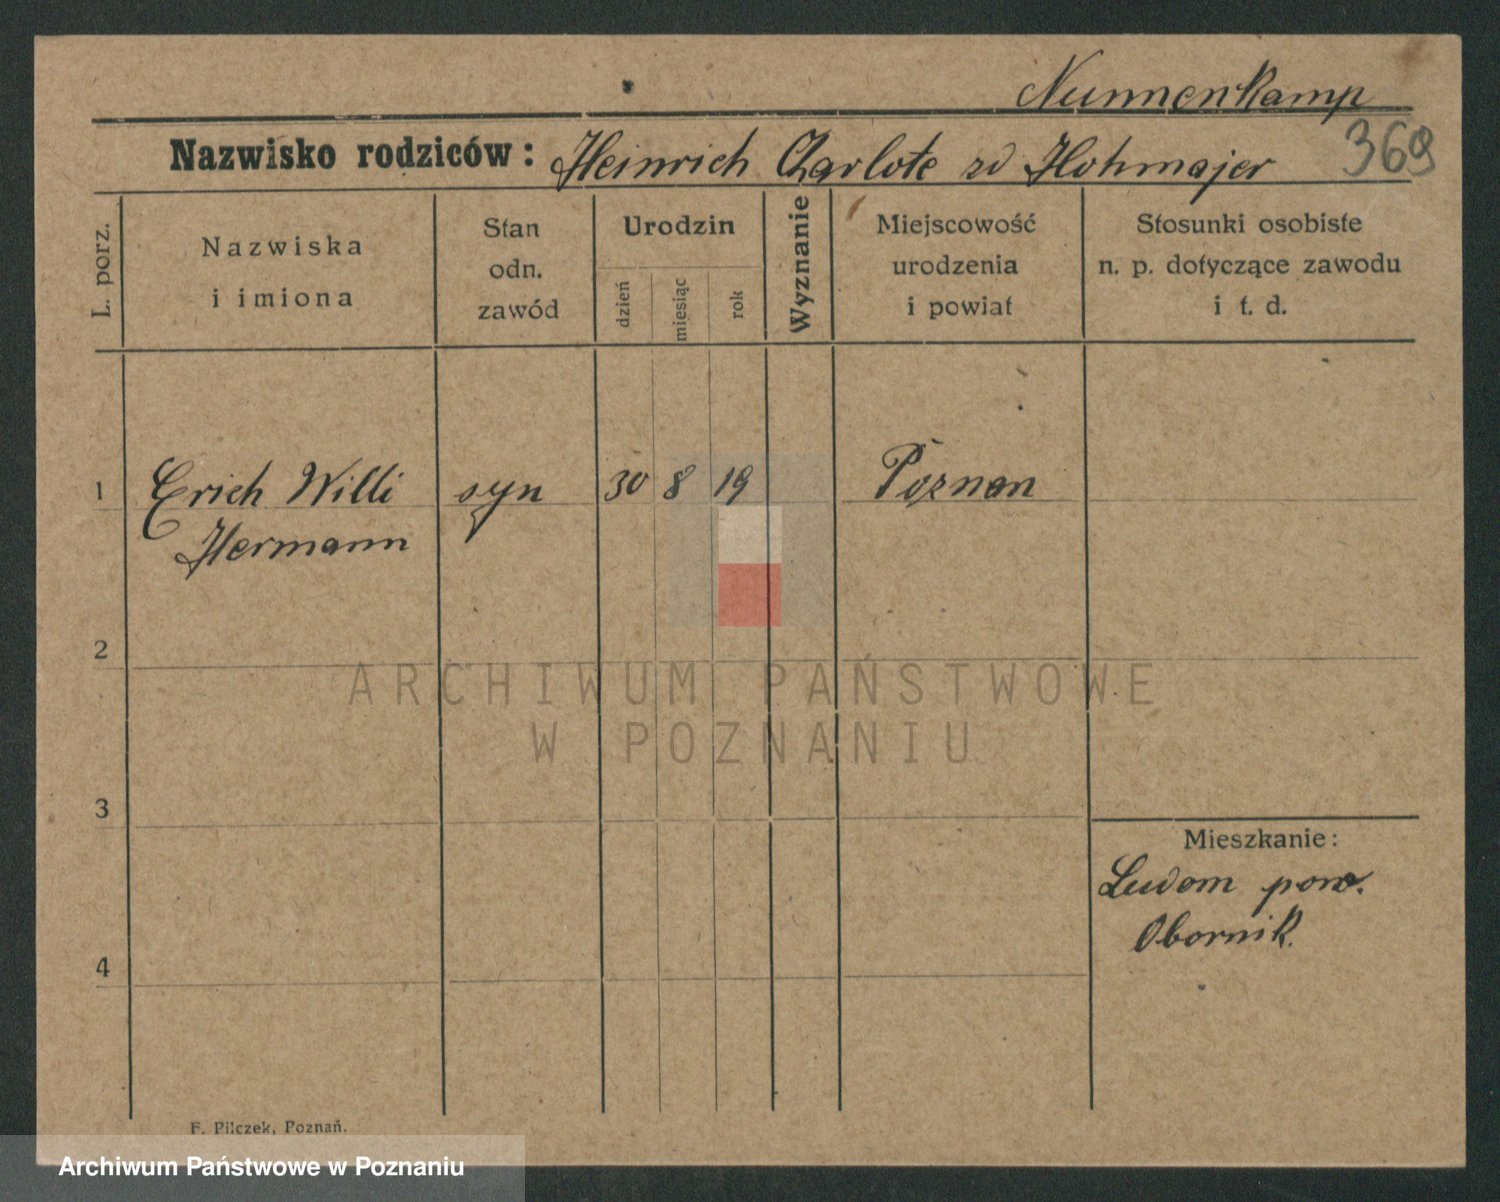 Nunnenkamp
Nazwisko rodziców: Heinrich Charlote zd Hohmajer
369
L. porz.
Nazwiska
i imiona
Stan
odn.
zawód
Urodzin
dzień
miesiąc
rok
Wyznanie
Miejscowość
urodzenia
i powiat
Stosunki osobiste
n. p. dotyczące zawodu
i t. d.
1 Erich Willi syn 30 8 19 Poznan
Hermann
2
ARCHIWUM PAŃSTWOWE
W POZNANIU
3
Mieszkanie:
Ludom pow.
Obornik.
4
F. Pilczek, Poznań.
Archiwum Państwowe w Poznaniu